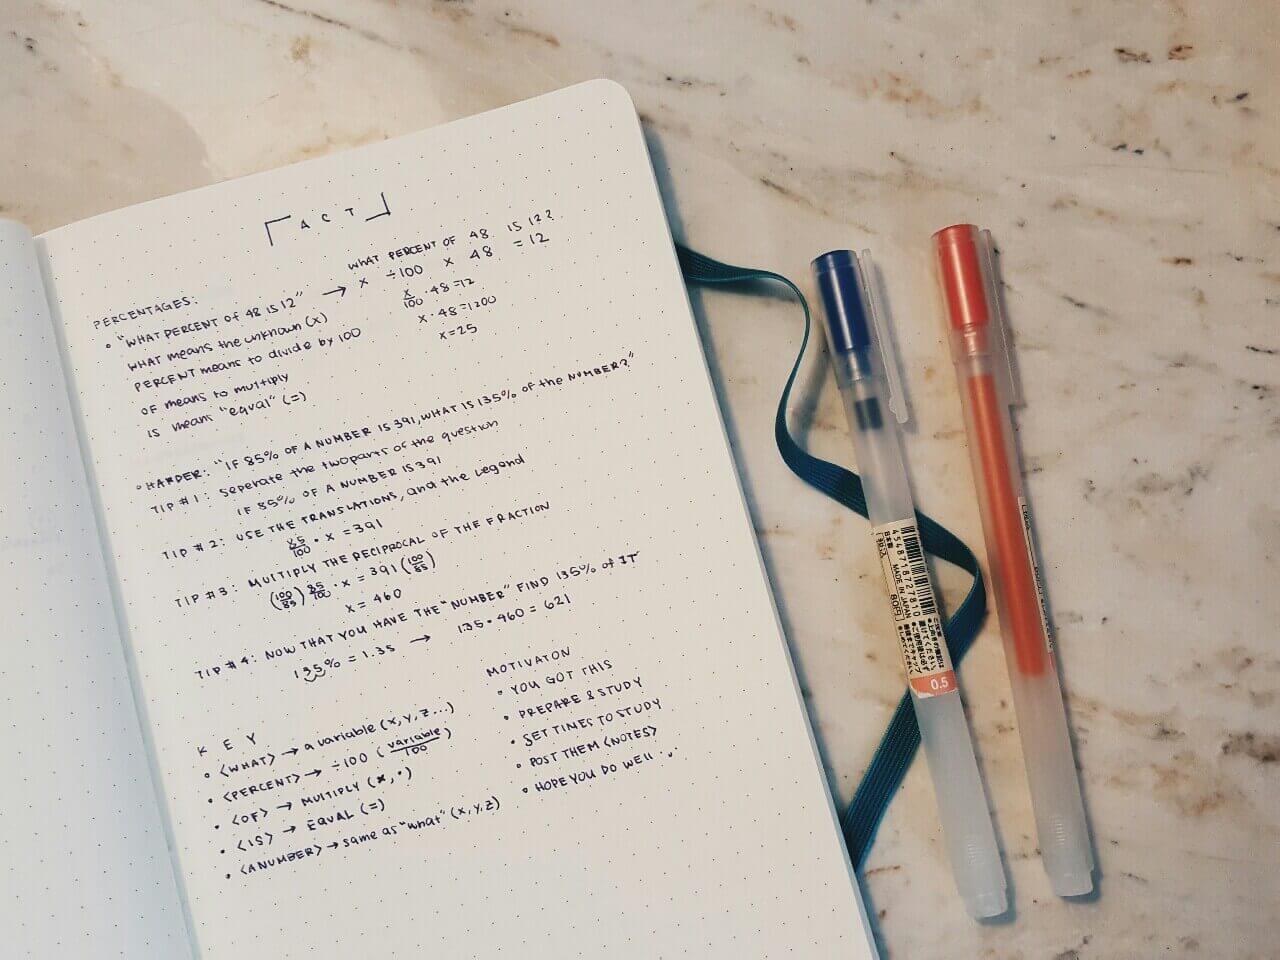 A C T
PERCENTAGES:
• "WHAT PERCENT OF 48 IS 12" →
WHAT means the unknown (x)
PERCENT means to divide by 100
OF means to multiply
IS means "equal" (=)
WHAT PERCENT OF 48 IS 12?
x ÷100 x 48 = 12
x/100 · 48 = 12
x · 48 = 1200
x = 25
• HARDER: "IF 85% OF A NUMBER IS 391, WHAT IS 135% OF the NUMBER?"
TIP #1: Seperate the two parts of the question
IF 85% OF A NUMBER IS 391
TIP #2: USE THE TRANSLATIONS, and the Legend
85/100 · x = 391
TIP #3: MULTIPLY THE RECIPROCAL OF THE FRACTION
(100/85) 85/100 · x = 391 (100/85)
x = 460
TIP #4: NOW THAT YOU HAVE THE "NUMBER" FIND 135% of IT
135% = 1.35 → 1.35 · 460 = 621
K E Y
• <WHAT> → a variable (x, y, z...)
• <PERCENT> → ÷100 (variable/100)
• <OF> → MULTIPLY (x, ·)
• <IS> → EQUAL (=)
• <A NUMBER> → same as "what" (x, y, z)
MOTIVATON
• YOU GOT THIS
• PREPARE & STUDY
• SET TIMES TO STUDY
• POST THEM <NOTES>
• HOPE YOU DO WELL
4548718727810
MADE IN JAPAN
0.5